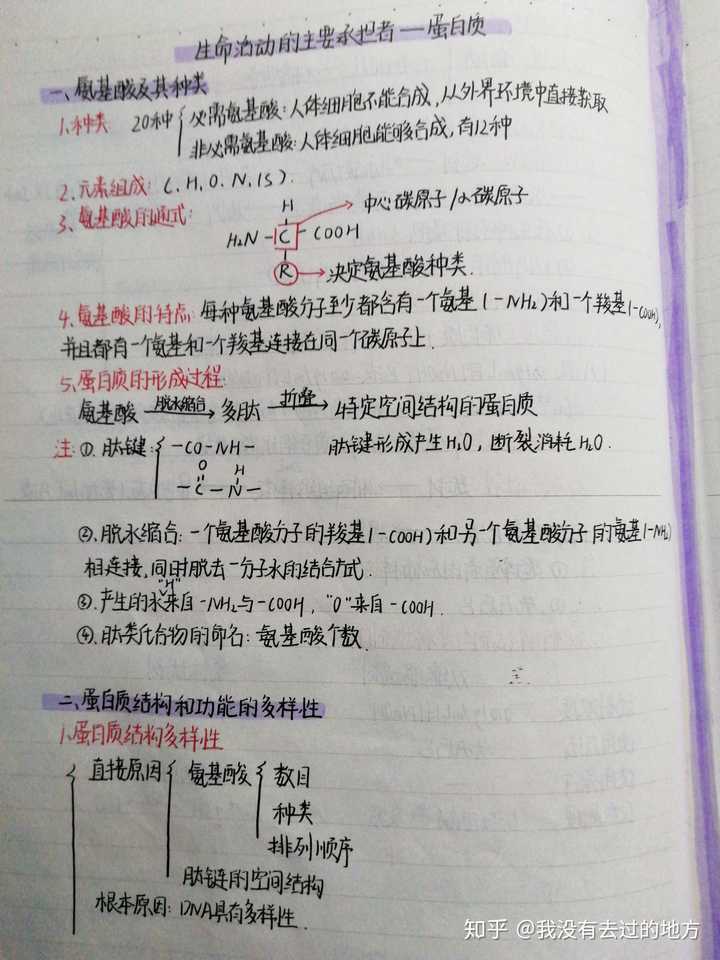 生命活动的主要承担者——蛋白质
一、氨基酸及其种类
1、种类 20种 { 必需氨基酸:人体细胞不能合成,从外界环境中直接获取
非必需氨基酸:人体细胞能够合成,有12种
2、元素组成:C、H、O、N、(S).
3、氨基酸的通式:
H
中心碳原子/α碳原子
H₂N-C-COOH
R→决定氨基酸种类.
4、氨基酸的特点:每种氨基酸分子至少都含有一个氨基(-NH₂)和一个羧基(-COOH),
并且都有一个氨基和一个羧基连接在同一个碳原子上.
5、蛋白质的形成过程
氨基酸 脱水缩合→ 多肽 折叠→ 特定空间结构的蛋白质
注:①.肽键:{ -CO-NH- 肽键形成产生H₂O,断裂消耗H₂O.
O H
-C-N-
②.脱水缩合:一个氨基酸分子的羧基(-COOH)和另一个氨基酸分子的氨基(-NH₂)
相连接,同时脱去一分子水的结合方式.
"H"
③.产生的水来自-NH₂与-COOH,"O"来自-COOH.
④.肽类化合物的命名:氨基酸个数.
二、蛋白质结构和功能的多样性
1、蛋白质结构多样性
{ 直接原因 { 氨基酸 { 数目
种类
排列顺序
肽链的空间结构
根本原因:DNA具有多样性.
知乎 @我没有去过的地方